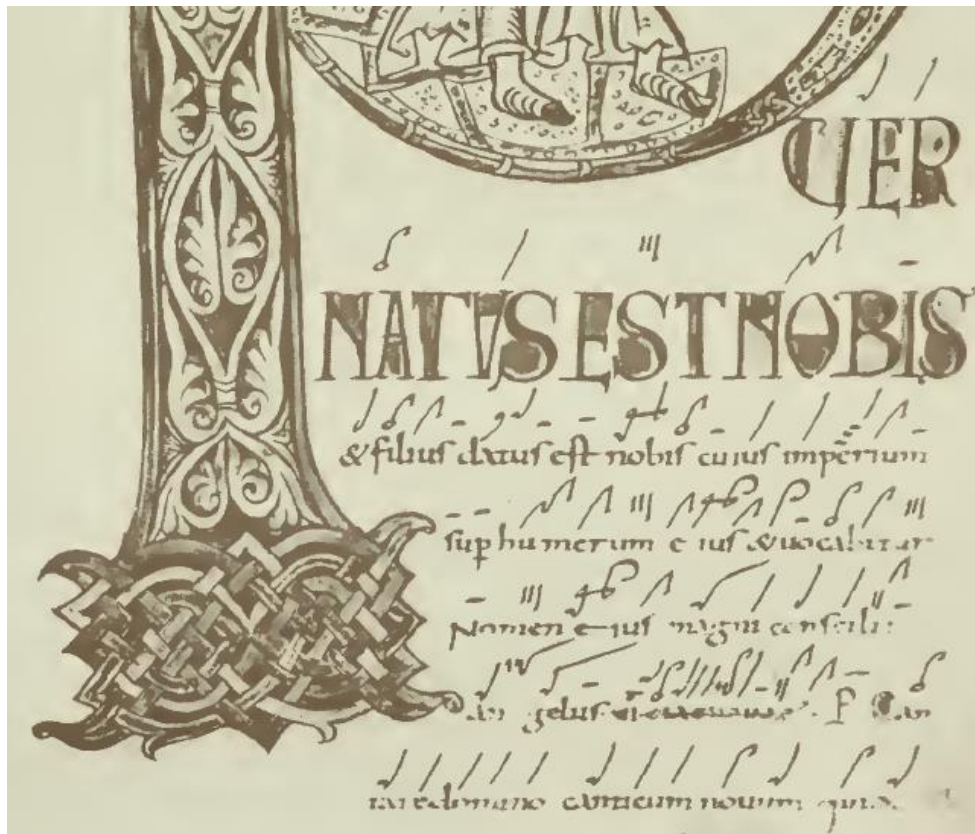 PUER
NATUS EST NOBIS
& filius datus est nobis cuius imperium
sup humerum e ius & uocabitur
Nomen e ius magni consilii
an gelus Can
tate domino canticum nouum quia